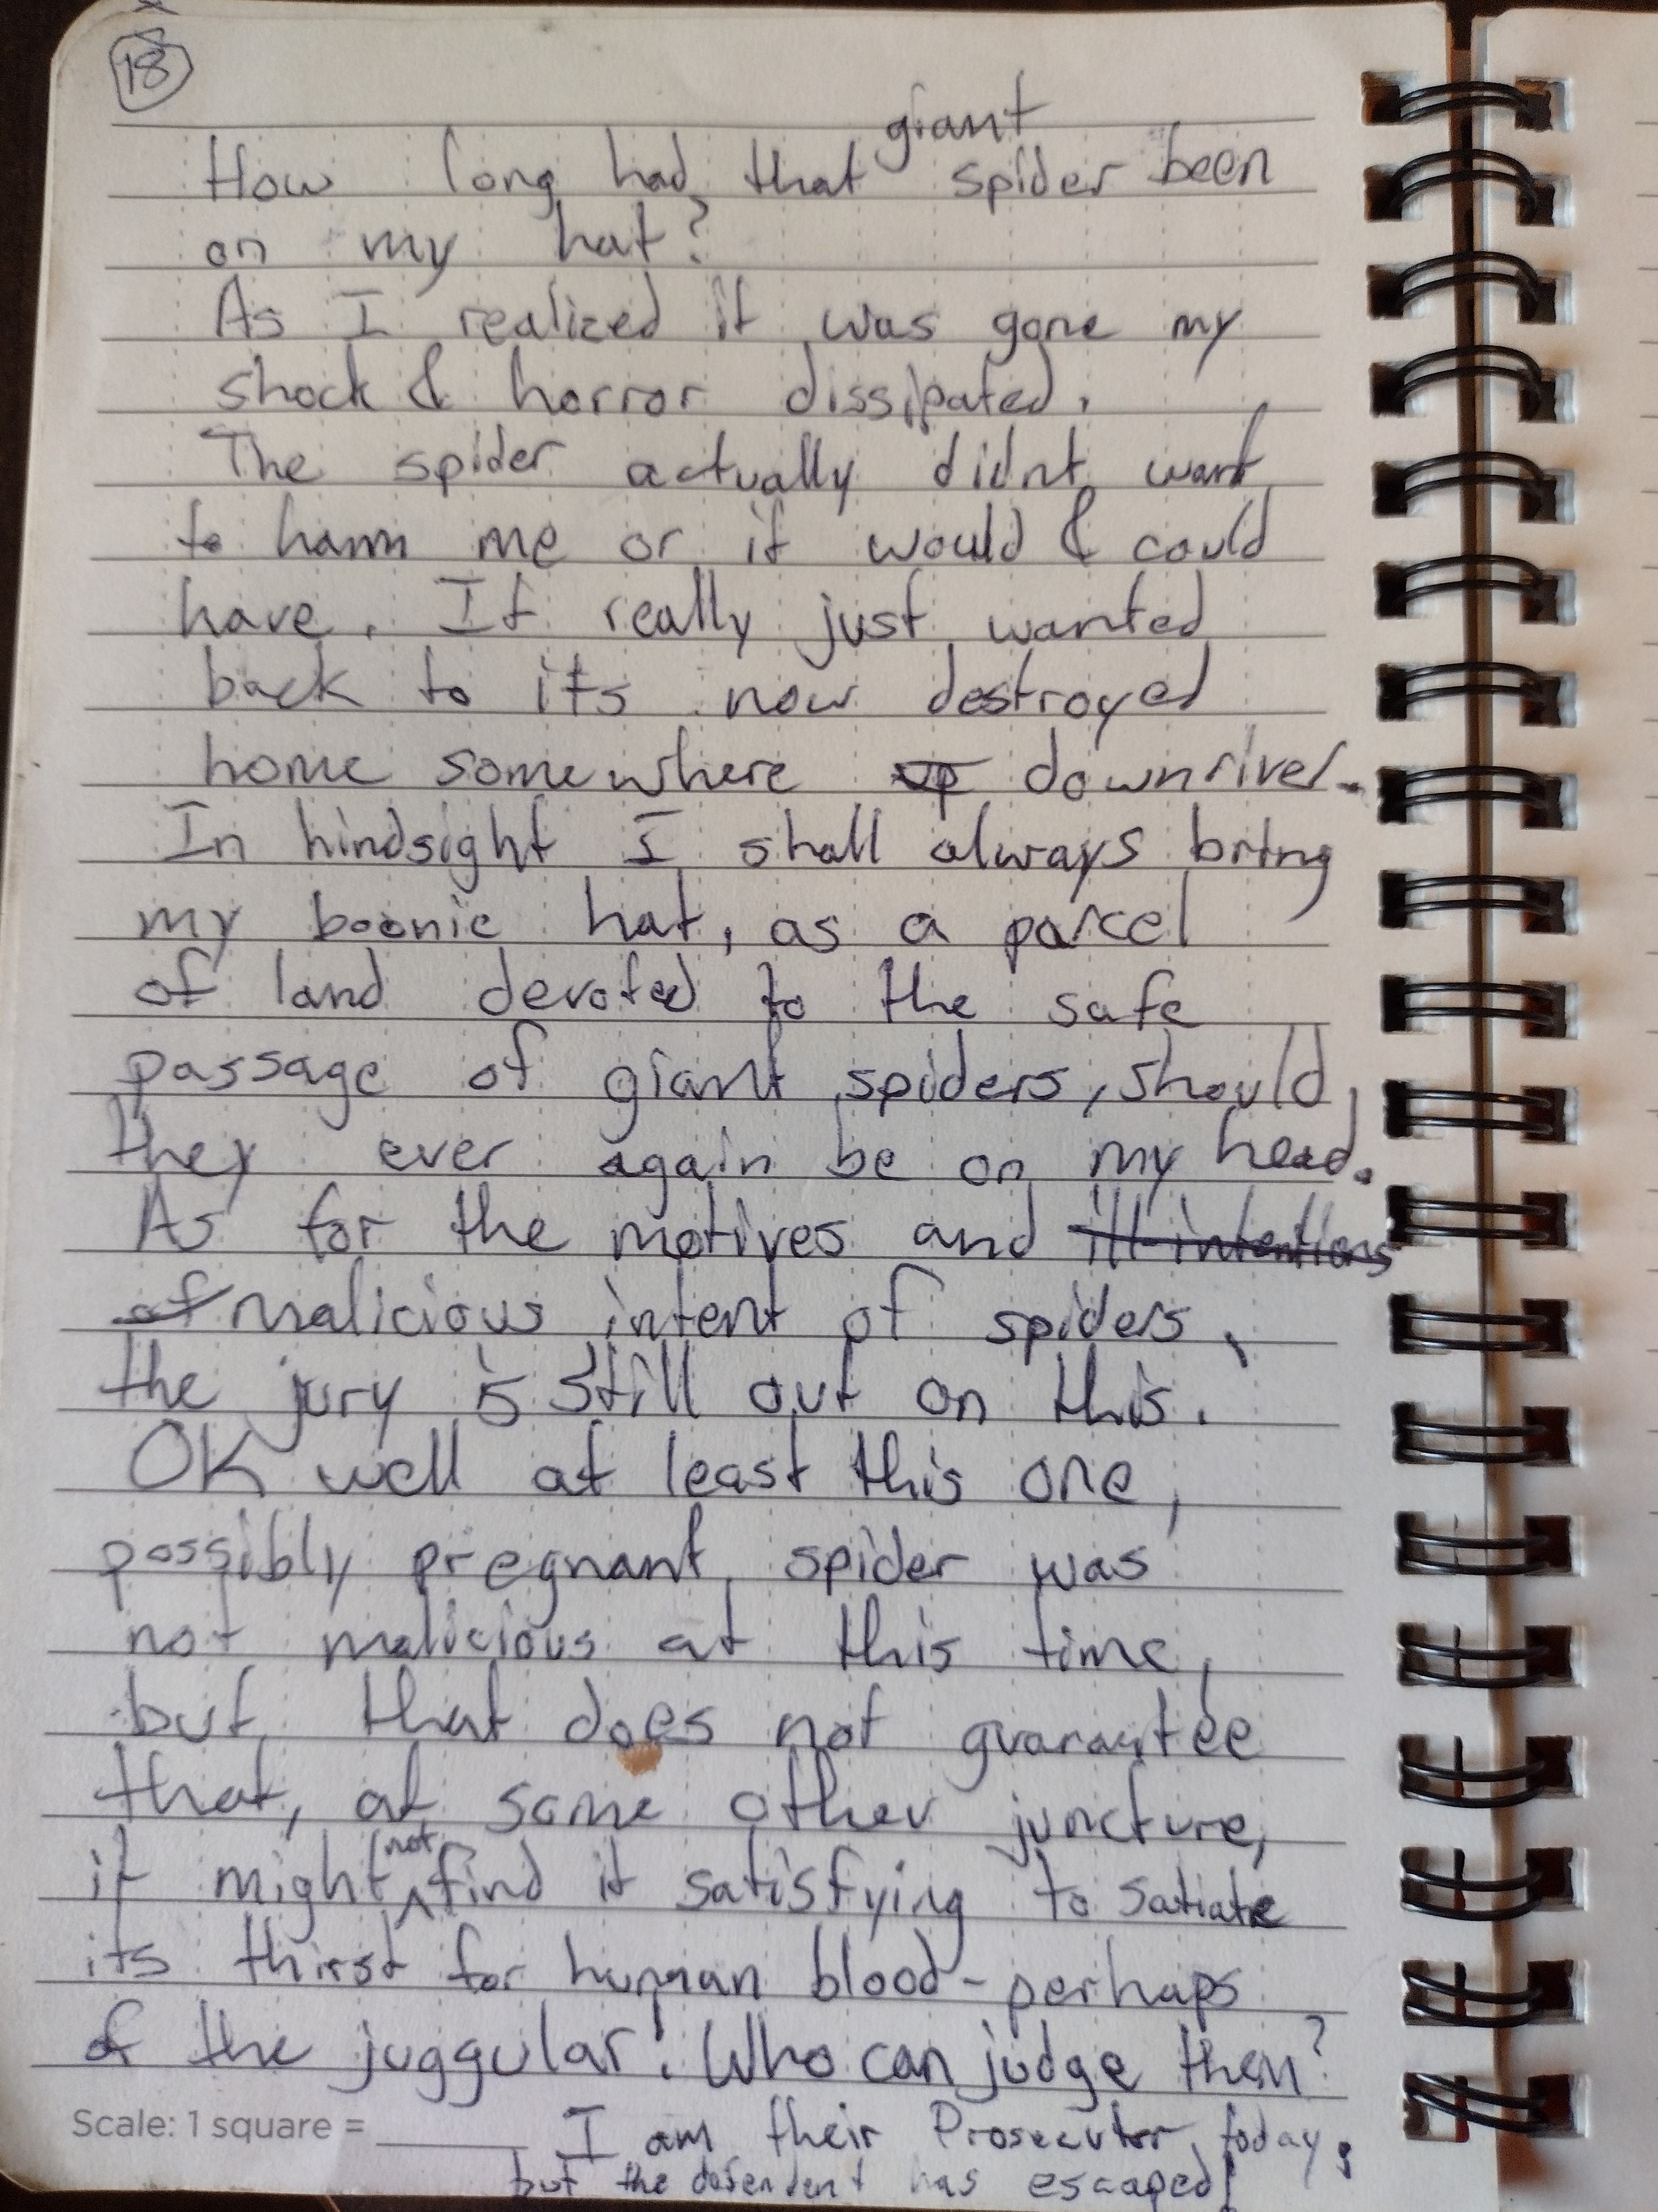 18
How long had that giant spider been
on my hat?
As I realized it was gone my
shock & horror dissipated.
The spider actually didnt want
to harm me or it would & could
have. It really just wanted
back to its now destroyed
home somewhere up downriver.
In hindsight I shall always bring
my boonie hat, as a parcel
of land devoted to the safe
passage of giant spiders, should
they ever again be on my head.
As for the motives and ill intentions
of malicious intent of spiders,
the jury is still out on this.
OK well at least this one,
possibly pregnant, spider was
not malicious at this time,
but that does not guarantee
that, at some other juncture,
it might not find it satisfying to satiate
its thirst for human blood - perhaps
of the juggular! Who can judge them?
Scale: 1 square = I am their Prosecutor today,
but the defendent has escaped!